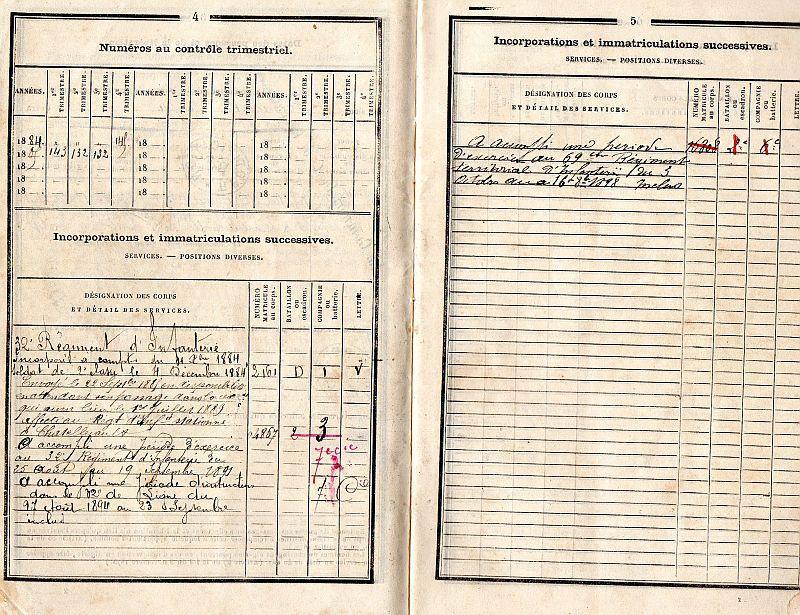 4
Numéros au contrôle trimestriel.
ANNÉES. 1er TRIMESTRE. 2e TRIMESTRE. 3e TRIMESTRE. 4e TRIMESTRE. ANNÉES. 1er TRIMESTRE. 2e TRIMESTRE. 3e TRIMESTRE. 4e TRIMESTRE. ANNÉES. 1er TRIMESTRE. 2e TRIMESTRE. 3e TRIMESTRE. 4e TRIMESTRE.
1884 18 18
18 143 132 132 18 18
18 18 18
18 18 18
18 18 18
Incorporations et immatriculations successives.
SERVICES. — POSITIONS DIVERSES.
DÉSIGNATION DES CORPS
ET DÉTAIL DES SERVICES.
NUMÉRO MATRICULE au corps.
BATAILLON ou escadron.
COMPAGNIE ou batterie.
LETTRE.
32e Régiment d'Infanterie
Incorporé à compter du 1884
Soldat de 2e classe le 4 Décembre 1884 2161 D 1 V
Envoyé le 22 Septbre en disponibilité
en attendant son passage dans la
qui aura lieu le 1er Juillet 1889
affecté au Régt d'Infie stationné
à Chatellerault 4867 2 3
A accompli une période d'exercice
au 32e Régiment d'Infanterie du
25 Août au 19 Septembre 1891
A accompli une période d'instruction
dans le 32e de Ligne du
27 Août 1894 au 23 Septembre
inclus
5
Incorporations et immatriculations successives.
SERVICES. — POSITIONS DIVERSES.
DÉSIGNATION DES CORPS
ET DÉTAIL DES SERVICES.
NUMÉRO MATRICULE au corps.
BATAILLON ou escadron.
COMPAGNIE ou batterie.
LETTRE.
A accompli une période
d'exercice au 69e Régiment
territorial d'Infanterie du 3
Octobre au 16 8bre 1898 inclus